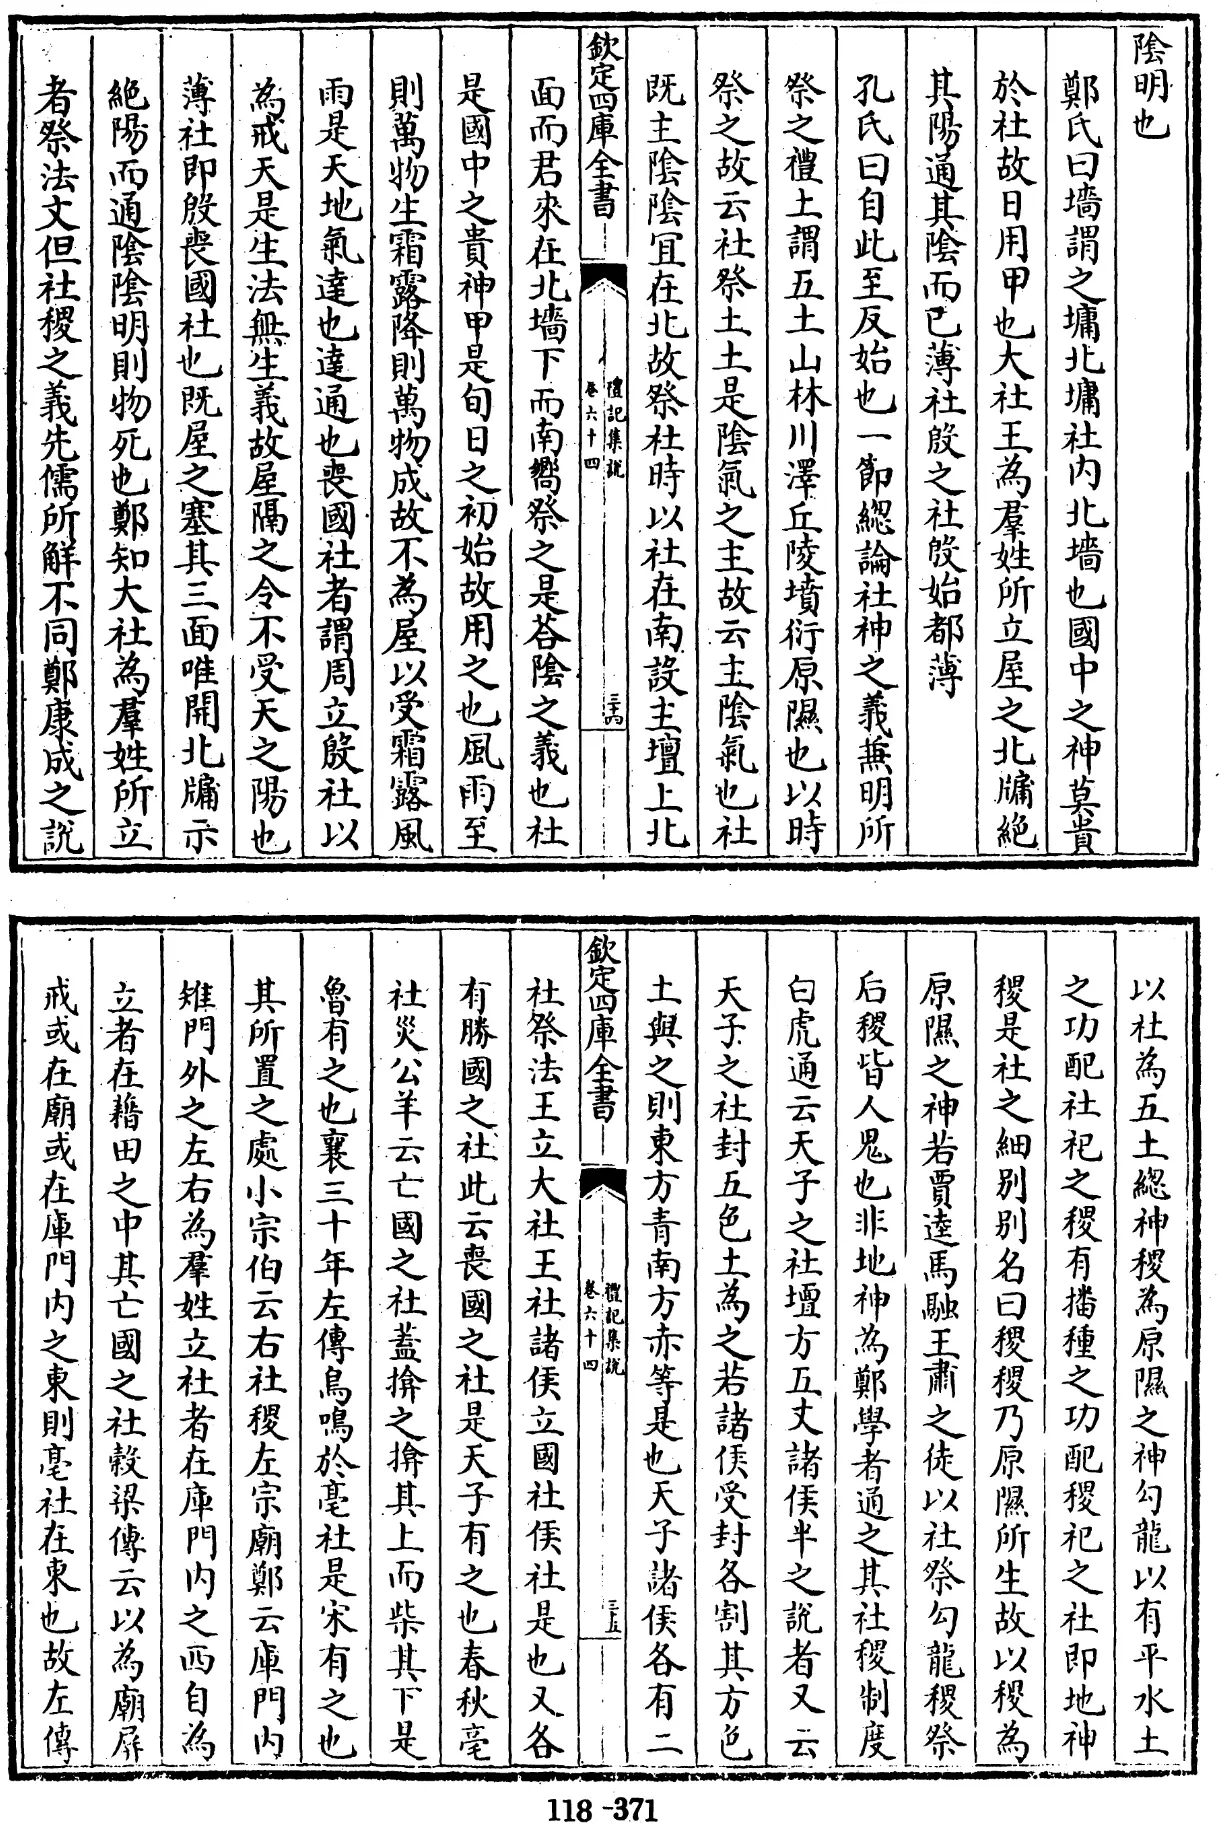 陰明也
鄭氏曰墻謂之墉北墉社内北墻也國中之神莫貴
於社故日用甲也大社王為羣姓所立屋之北牖絶
其陽通其陰而已薄社殷之社殷始都薄
孔氏曰自此至反始也一節緫論社神之義蕪明所
祭之禮土謂五土山林川澤丘陵墳衍原隰也以時
祭之故云社祭土土是陰氣之主故云主陰氣也社
既主陰陰宜在北故祭社時以社在南設主壇上北
欽定四庫全書
禮記集説
卷六十四
三十六
面而君來在北墻下而南嚮祭之是荅陰之義也社
是國中之貴神甲是旬日之初始故用之也風雨至
則萬物生霜露降則萬物成故不為屋以受霜露風
雨是天地氣達也達通也喪國社者謂周立殷社以
為戒天是生法無生義故屋隔之令不受天之陽也
薄社即殷喪國社也既屋之塞其三面唯開北牖示
絶陽而通陰陰明則物死也鄭知大社為羣姓所立
者祭法文但社稷之義先儒所解不同鄭康成之説
以社為五土緫神稷為原隰之神勾龍以有平水土
之功配社祀之稷有播種之功配稷祀之社即地神
稷是社之細别别名曰稷稷乃原隰所生故以稷為
原隰之神若賈逵馬融王肅之徒以社祭勾龍稷祭
后稷皆人鬼也非地神為鄭學者通之其社稷制度
白虎通云天子之社壇方五丈諸侯半之説者又云
天子之社封五色土為之若諸侯受封各割其方色
土與之則東方青南方赤等是也天子諸侯各有二
欽定四庫全書
禮記集説
卷六十四
三十五
社祭法王立大社王社諸侯立國社侯社是也又各
有勝國之社此云喪國之社是天子有之也春秋亳
社災公羊云亡國之社蓋揜之揜其上而柴其下是
魯有之也襄三十年左傳鳥鳴於亳社是宋有之也
其所置之處小宗伯云右社稷左宗廟鄭云庫門内
雉門外之左右為羣姓立社者在庫門内之西自為
立者在藉田之中其亡國之社穀梁傳云以為廟屏
戒或在廟或在庫門内之東則亳社在東也故左傳
118-371